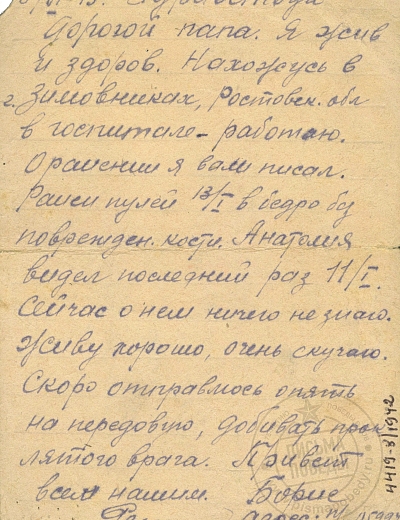 Дорогой папа. Я жив
и здоров. Нахожусь в
г. Зимовниках, Ростовск. обл
в госпитале - работаю.
О ранении я вам писал.
Ранен пулей 13/I в бедро без
поврежден. кости. Анатолия
видел последний раз 11/I.
Сейчас о нем ничего не знаю.
Живу хорошо, очень скучаю.
Скоро отправлюсь опять
на передовую, добивать прок
лятого врага. Привет
всем нашим. Борис
ПИСЬМА